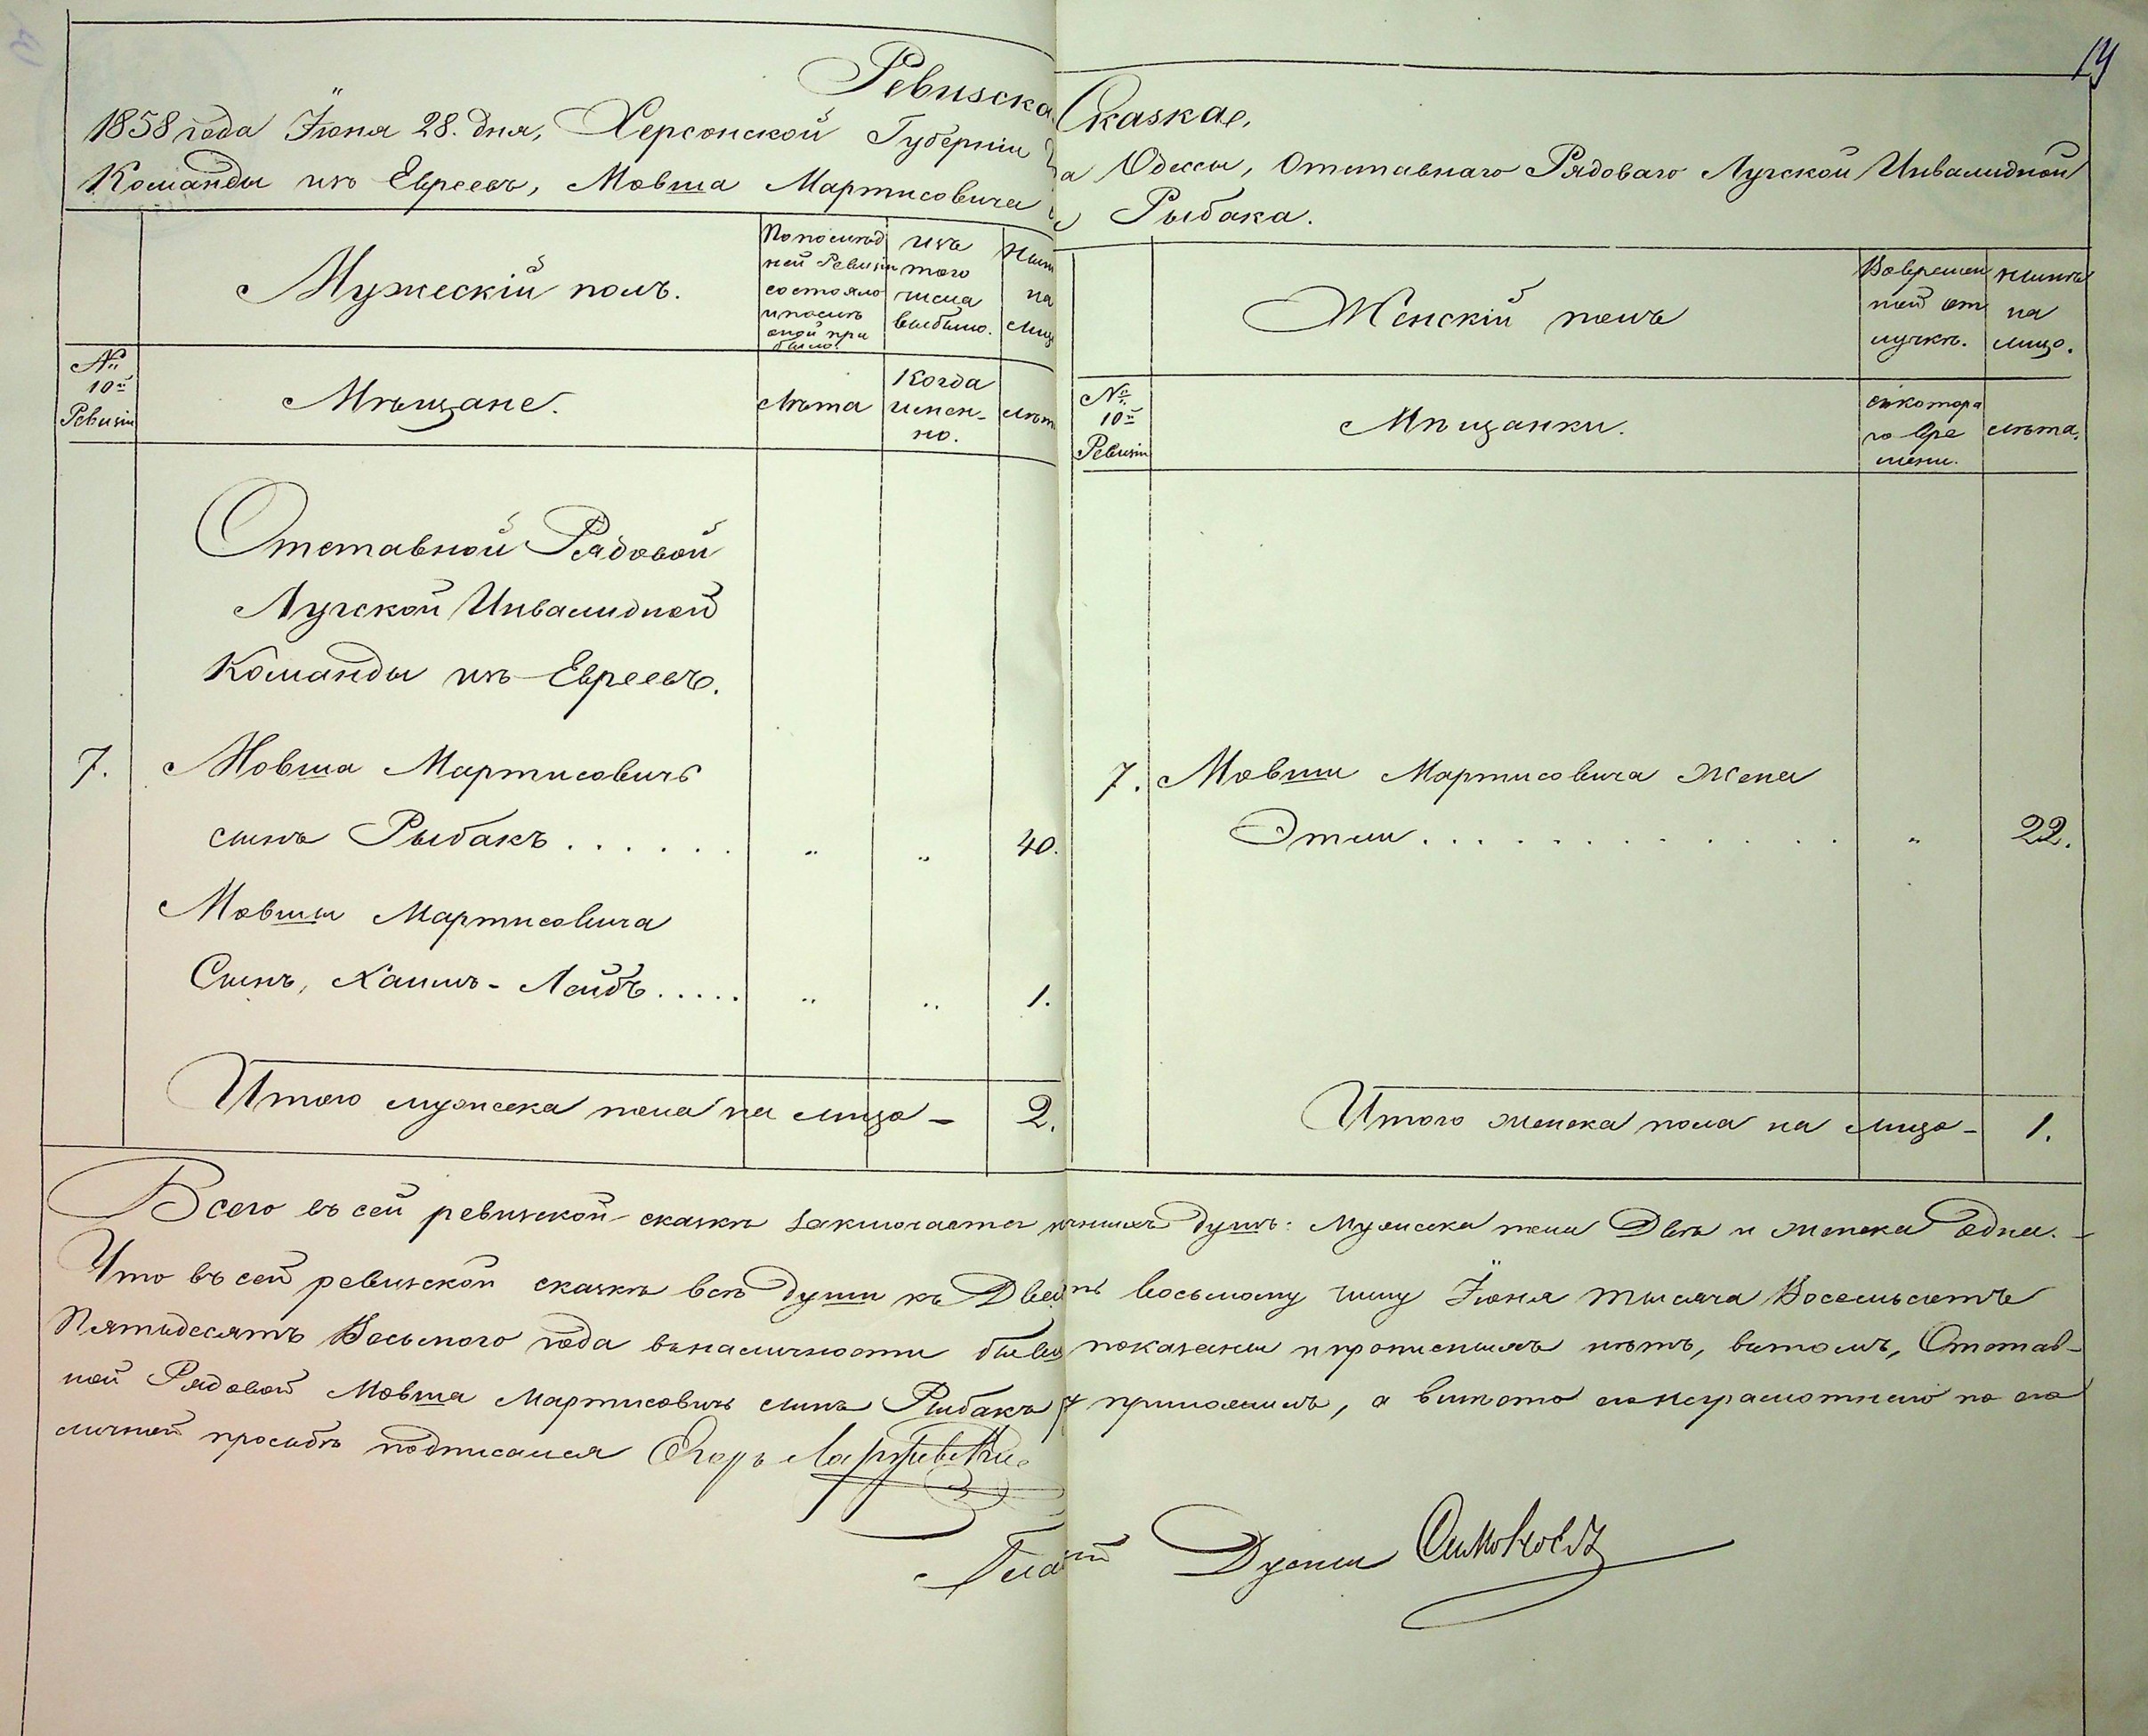 14
Ревизская Сказка,
1858 года Іюня 28. дня, Херсонской Губерніи Г̃да Одессы, Отставнаго Рядоваго Лугской Инвалидной
Команды изъ Евреевъ, Мовша Мартисовича Рыбака.
Мужескій полъ.
По послѣд
ней Ревизіи
состояло
и послѣ
оной при
было.
изъ
того
числа
выбыло.
Нынѣ
на
лицо
№
10й
Ревизіи
Мѣщане.
Лѣта
Когда
имен-
но.
лѣта
Отставной Рядовой
Лугской Инвалидной
Команды изъ Евреевъ.
7. Мовша Мартисовичъ
сынъ Рыбакъ . . . . . . „ „ 40.
Мовши Мартисовича
Сынъ, Хаимъ-Лейбъ . . . . . „ „ 1.
Итого мужеска пола на лицо - 2.
Женскій полъ
Во времен
ной от
лучкѣ.
нынѣ
на
лицо.
№
10й
Ревизіи
Мѣщанки.
съ котора
го вре
мени.
лѣта.
7. Мовши Мартисовича жена
Этли . . . . . . . . . . . . „ 22.
Итого женска пола на лицо - 1.
Всего въ сей ревизской сказкѣ заключается наличныхъ душъ: Мужеска пола Двѣ и женска одна.
Что въ сей ревизской сказкѣ всѣ души къ Двадцать восьмому числу Іюня тысяча Восемьсотъ
Пятьдесятъ Восьмого года въ наличности бывшіе показаны и прописныхъ нѣтъ, въ томъ, Отстав-
ной Рядовой Мовша Мартисовичъ сынъ Рыбакъ приложилъ, а вмѣсто его неграмотнаго по его
личной просьбѣ подписался Егоръ
Гласный Думы